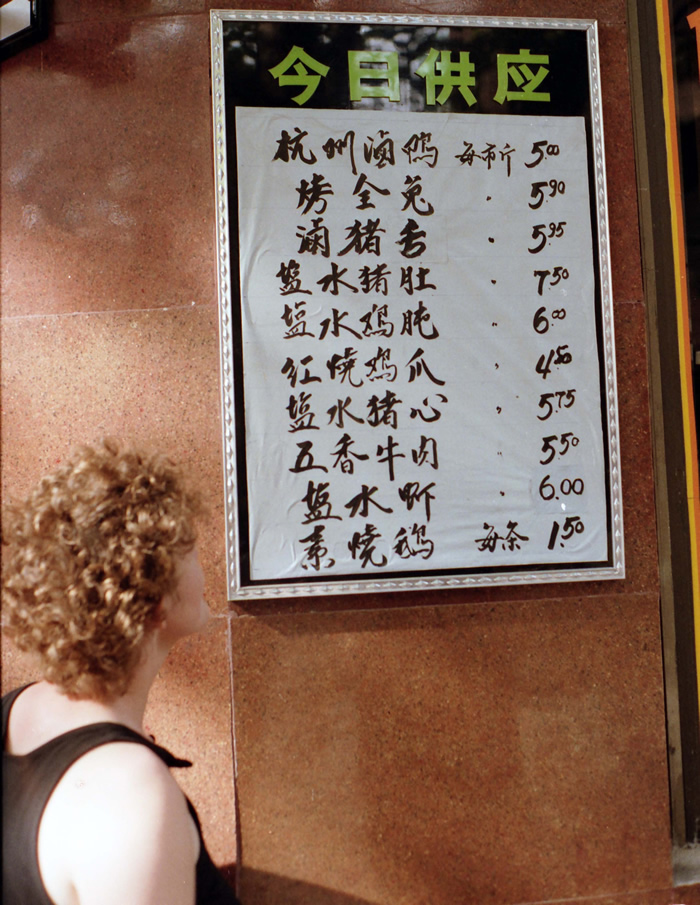 今日供应
杭州滷鸭 每市斤 5.00
烤全兔 〃 5.90
滷猪舌 〃 5.95
塩水猪肚 〃 7.50
塩水鸡肫 〃 6.00
红燒鸡爪 〃 4.50
塩水猪心 〃 5.75
五香牛肉 〃 5.50
塩水虾 〃 6.00
素燒鹅 每条 1.50